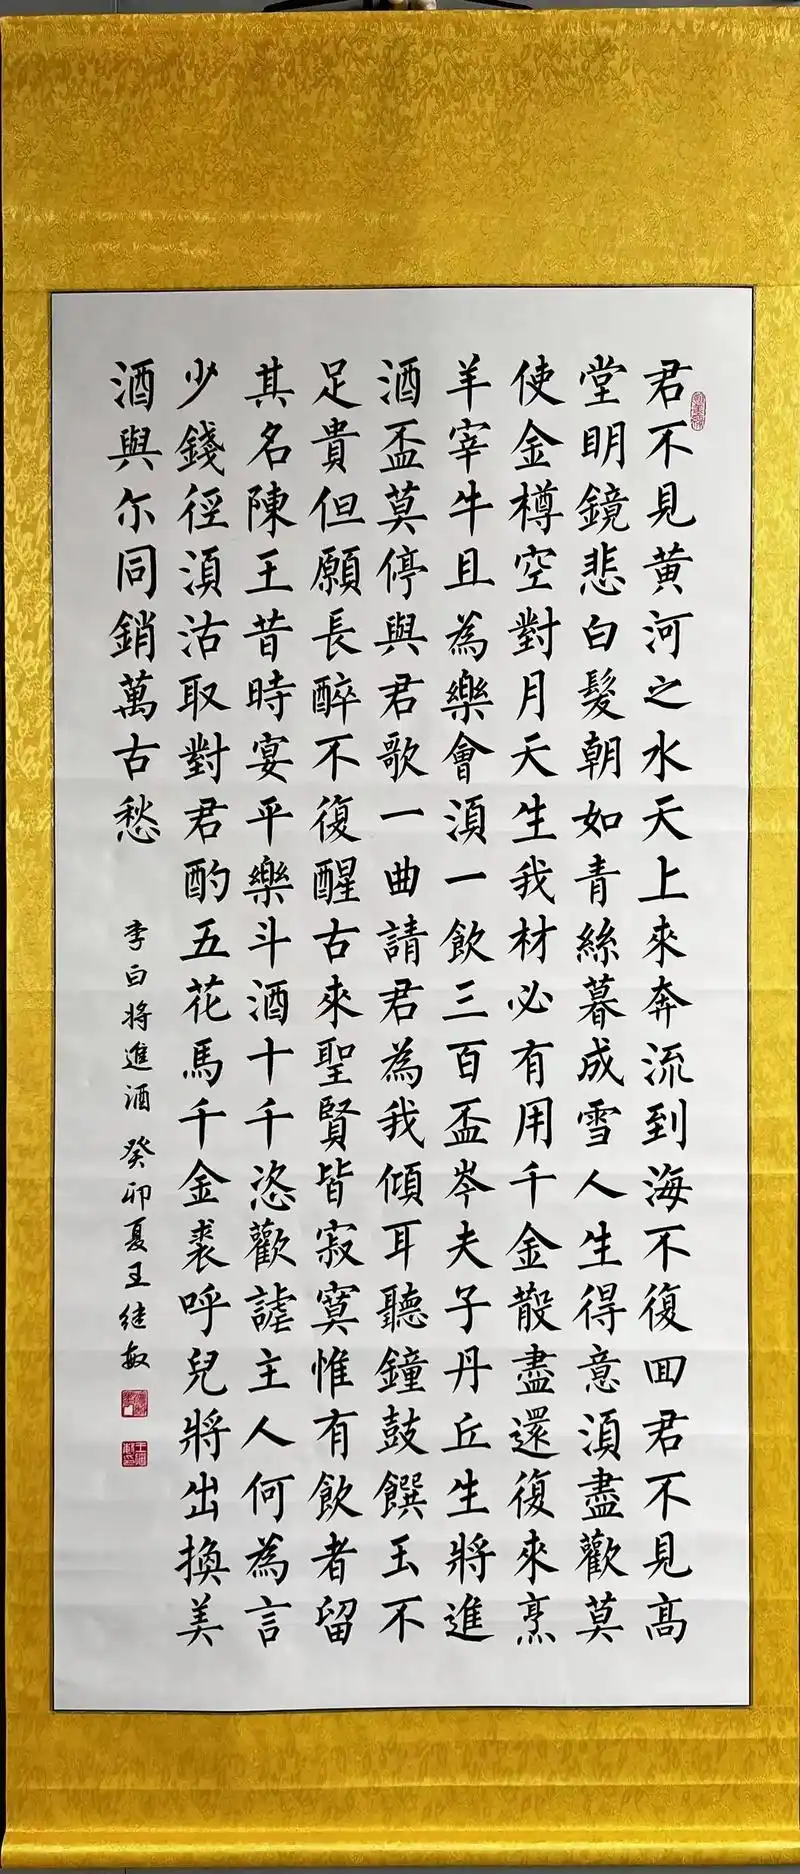 君不見黃河之水天上來奔流到海不復囬君不見髙
堂眀鏡悲白髮朝如青絲暮成雪人生得意湏盡歡莫
使金樽空對月天生我材必有用千金散盡還復來烹
羊宰牛且為樂會湏一飲三百盃岑夫子丹丘生將進
酒盃莫停與君歌一曲請君為我傾耳聽鐘鼓饌玉不
足貴但願長醉不復醒古來聖賢皆寂寞惟有飲者留
其名陳王昔時宴平樂斗酒十千恣歡謔主人何為言
少錢徑湏沽取對君酌五花馬千金裘呼兒將出換美
酒與尔同銷萬古愁
李白将進酒 癸卯夏王继敏